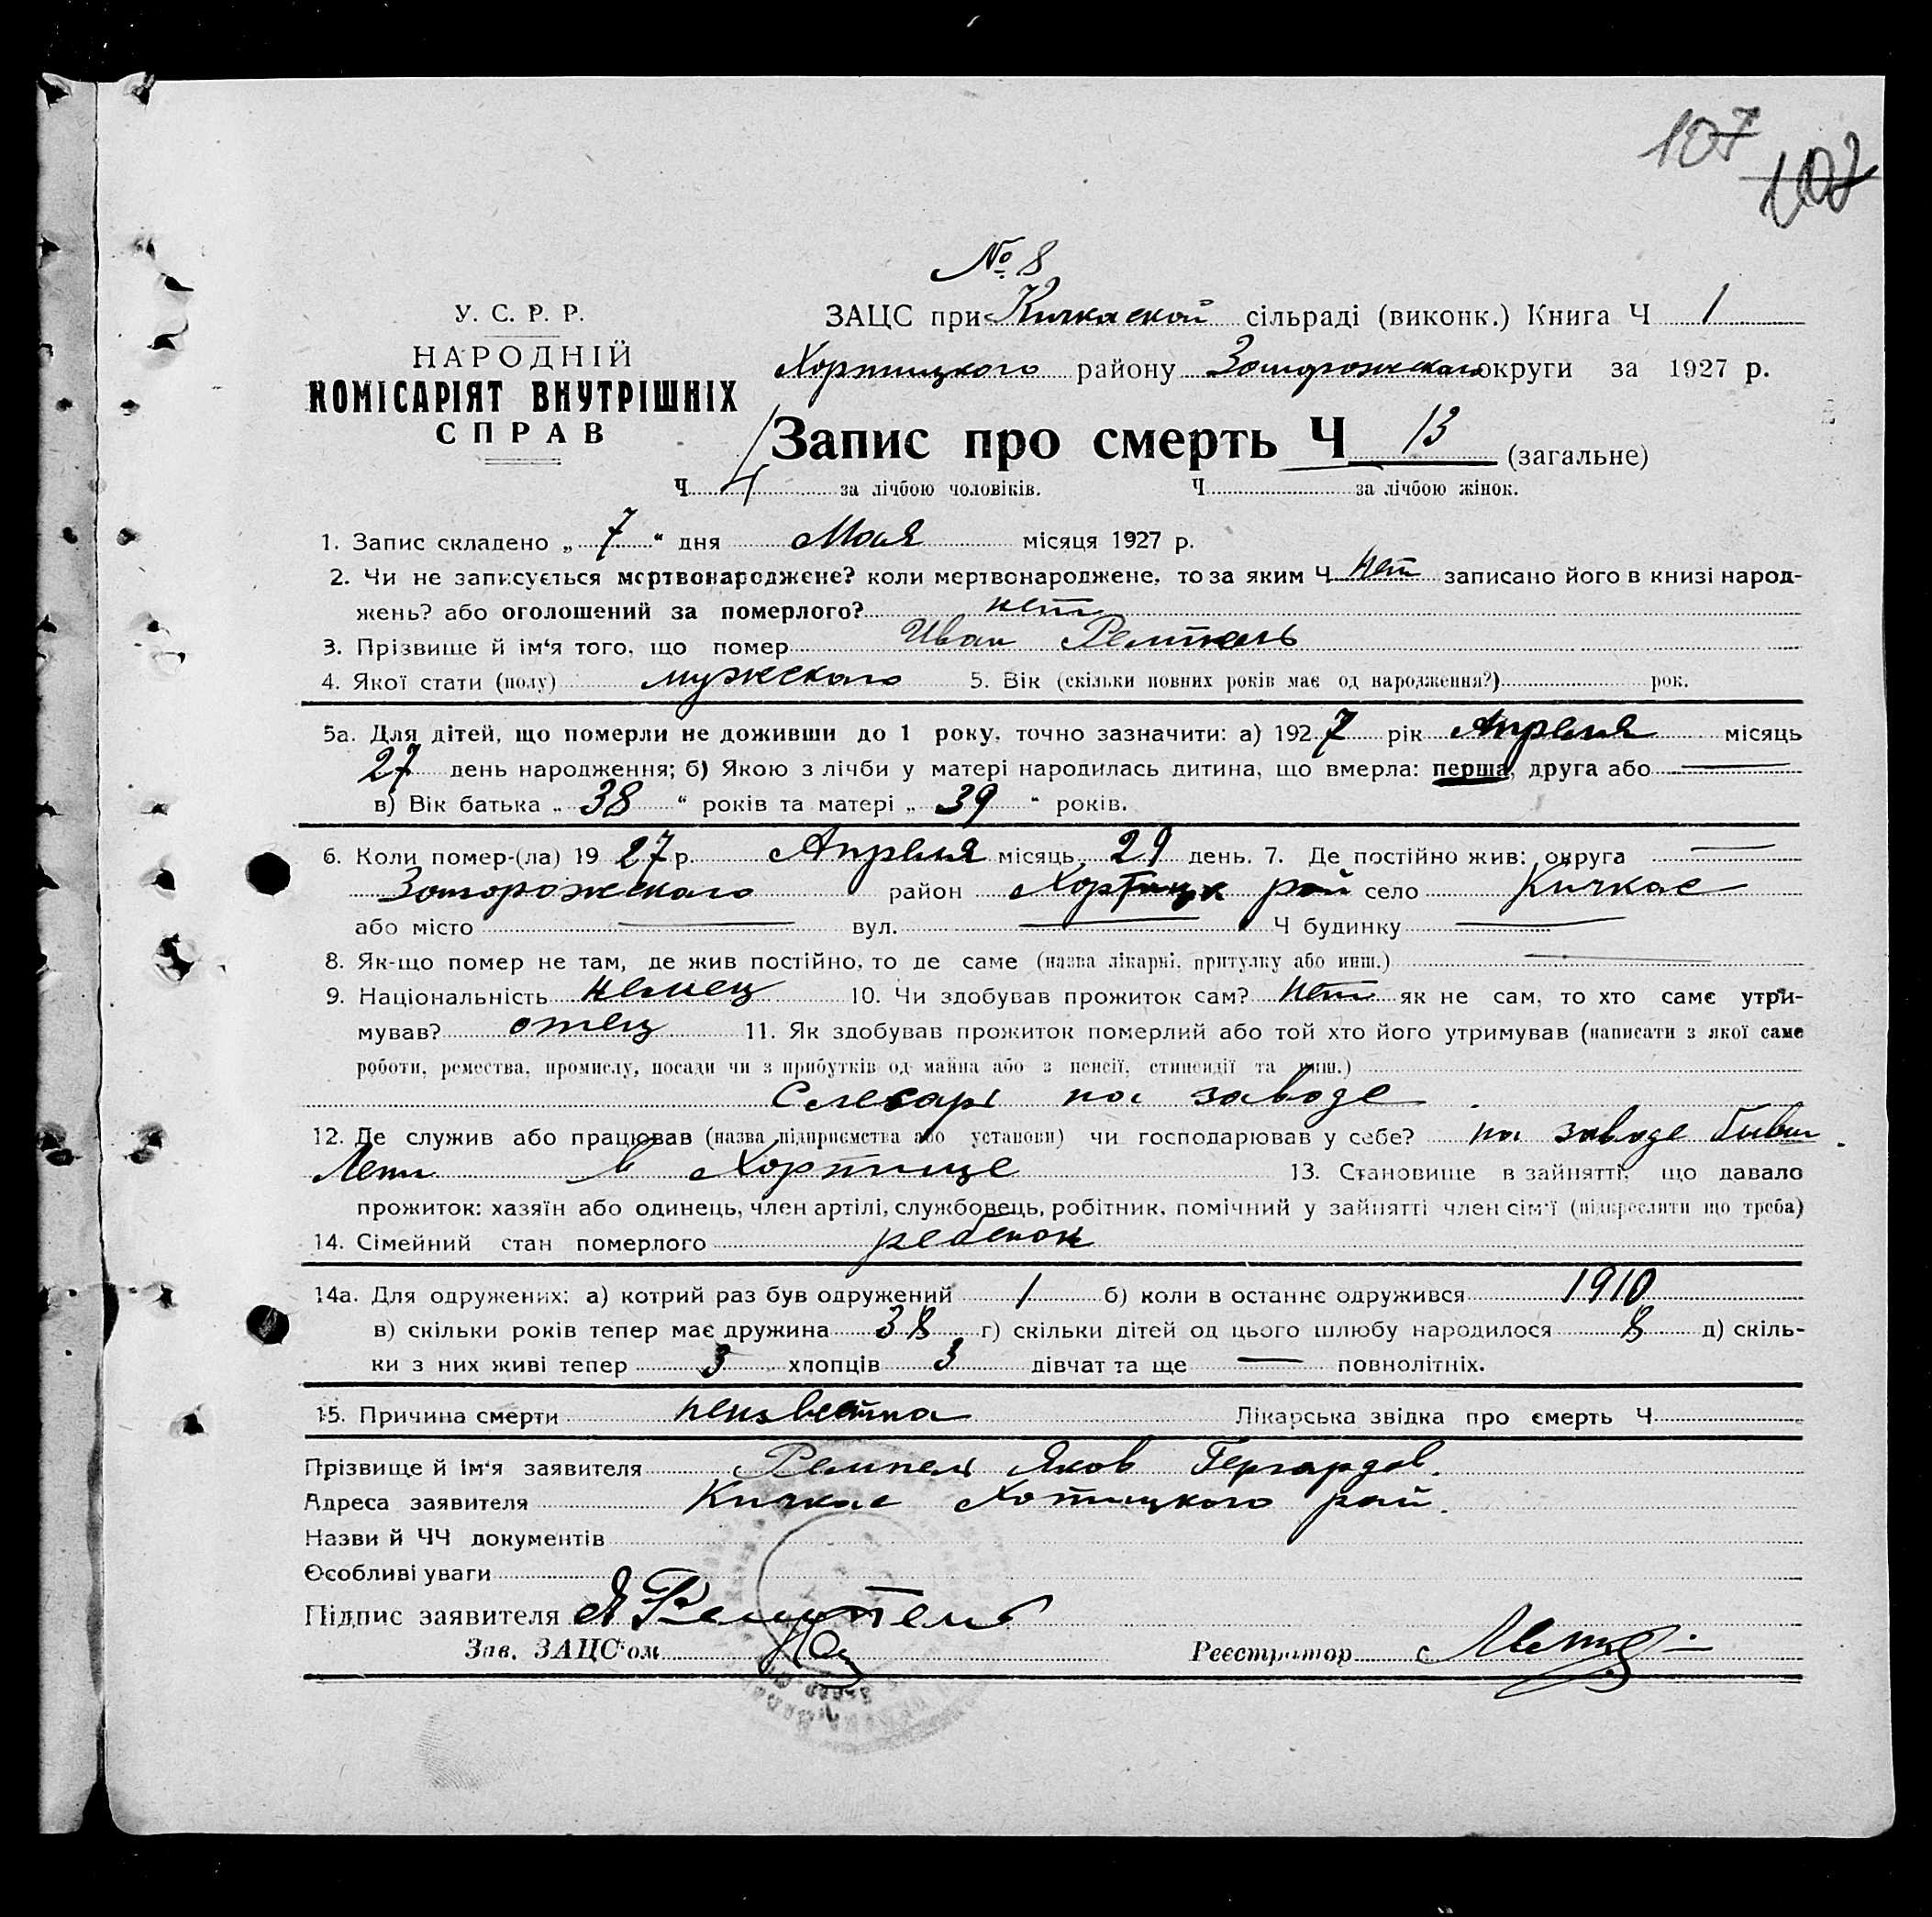 107
107
№ 8
У. С. Р. Р.
НАРОДНІЙ
КОМІСАРІЯТ ВНУТРІШНІХ
СПРАВ
ЗАЦС при Кичкаской сільраді (виконк.) Книга Ч 1
Хортицкого району Запорожскаго округи за 1927 р.
Запис про смерть Ч 13 (загальне)
Ч 4 за лічбою чоловіків. Ч за лічбою жінок.
1. Запис складено „ 7 “ дня Мая місяця 1927 р.
2. Чи не записується мертвонароджене? коли мертвонароджене, то за яким Ч нет записано його в книзі народ-
жень? або оголошений за померлого? нет
3. Прізвище й ім‘я того, що помер Иван Ремпель
4. Якої стати (полу) мужескаго 5. Вік (скільки повних років має од народження?) рок.
5а. Для дітей, що померли не доживши до 1 року, точно зазначити: а) 1927 рік Апреля місяць
27 день народження; б) Якою з лічби у матері народилась дитина, що вмерла: перша, друга або —
в) Вік батька „ 38 “ років та матері „ 39 “ років.
6. Коли помер-(ла) 1927 р. Апреля місяць 29 день. 7. Де постійно жив: округа —
Запорожскаго район Хортицк рай село Кичкас
або місто — вул. — Ч будинку —
8. Як-що помер не там, де жив постійно, то де саме (назва лікарні, притулку або инш.) —
9. Національність немец 10. Чи здобував прожиток сам? нет як не сам, то хто саме утри-
мував? отец 11. Як здобував прожиток померлий або той хто його утримував (написати з якої саме
роботи, ремества, промислу, посади чи з прибутків од майна або з пенсії, стипендії та инш.)
Слесарь на заводе
12. Де служив або працював (назва підприємства або установи) чи господарював у себе? на заводе бывш.
Лепп в Хортице 13. Становище в зайнятті, що давало
прожиток: хазяїн або одинець, член артілі, службовець, робітник, помічний у зайнятті член сім‘ї (підкреслити що треба)
14. Сімейний стан померлого ребенок
14а. Для одружених: а) котрий раз був одружений 1 б) коли в останнє одружився 1910
в) скільки років тепер має дружина 38 г) скільки дітей од цього шлюбу народилося 8 д) скіль-
ки з них живі тепер 3 хлопців 3 дівчат та ще — повнолітніх.
15. Причина смерти неизвестна Лікарська звідка про смерть Ч
Прізвище й ім‘я заявителя Ремпель Яков Гергардов.
Адреса заявителя Кичкас Хотицкого рай.
Назви й ЧЧ документів
Особливі уваги
Підпис заявителя Я Ремпель
Зав. ЗАЦС‘ом
Реєстратор